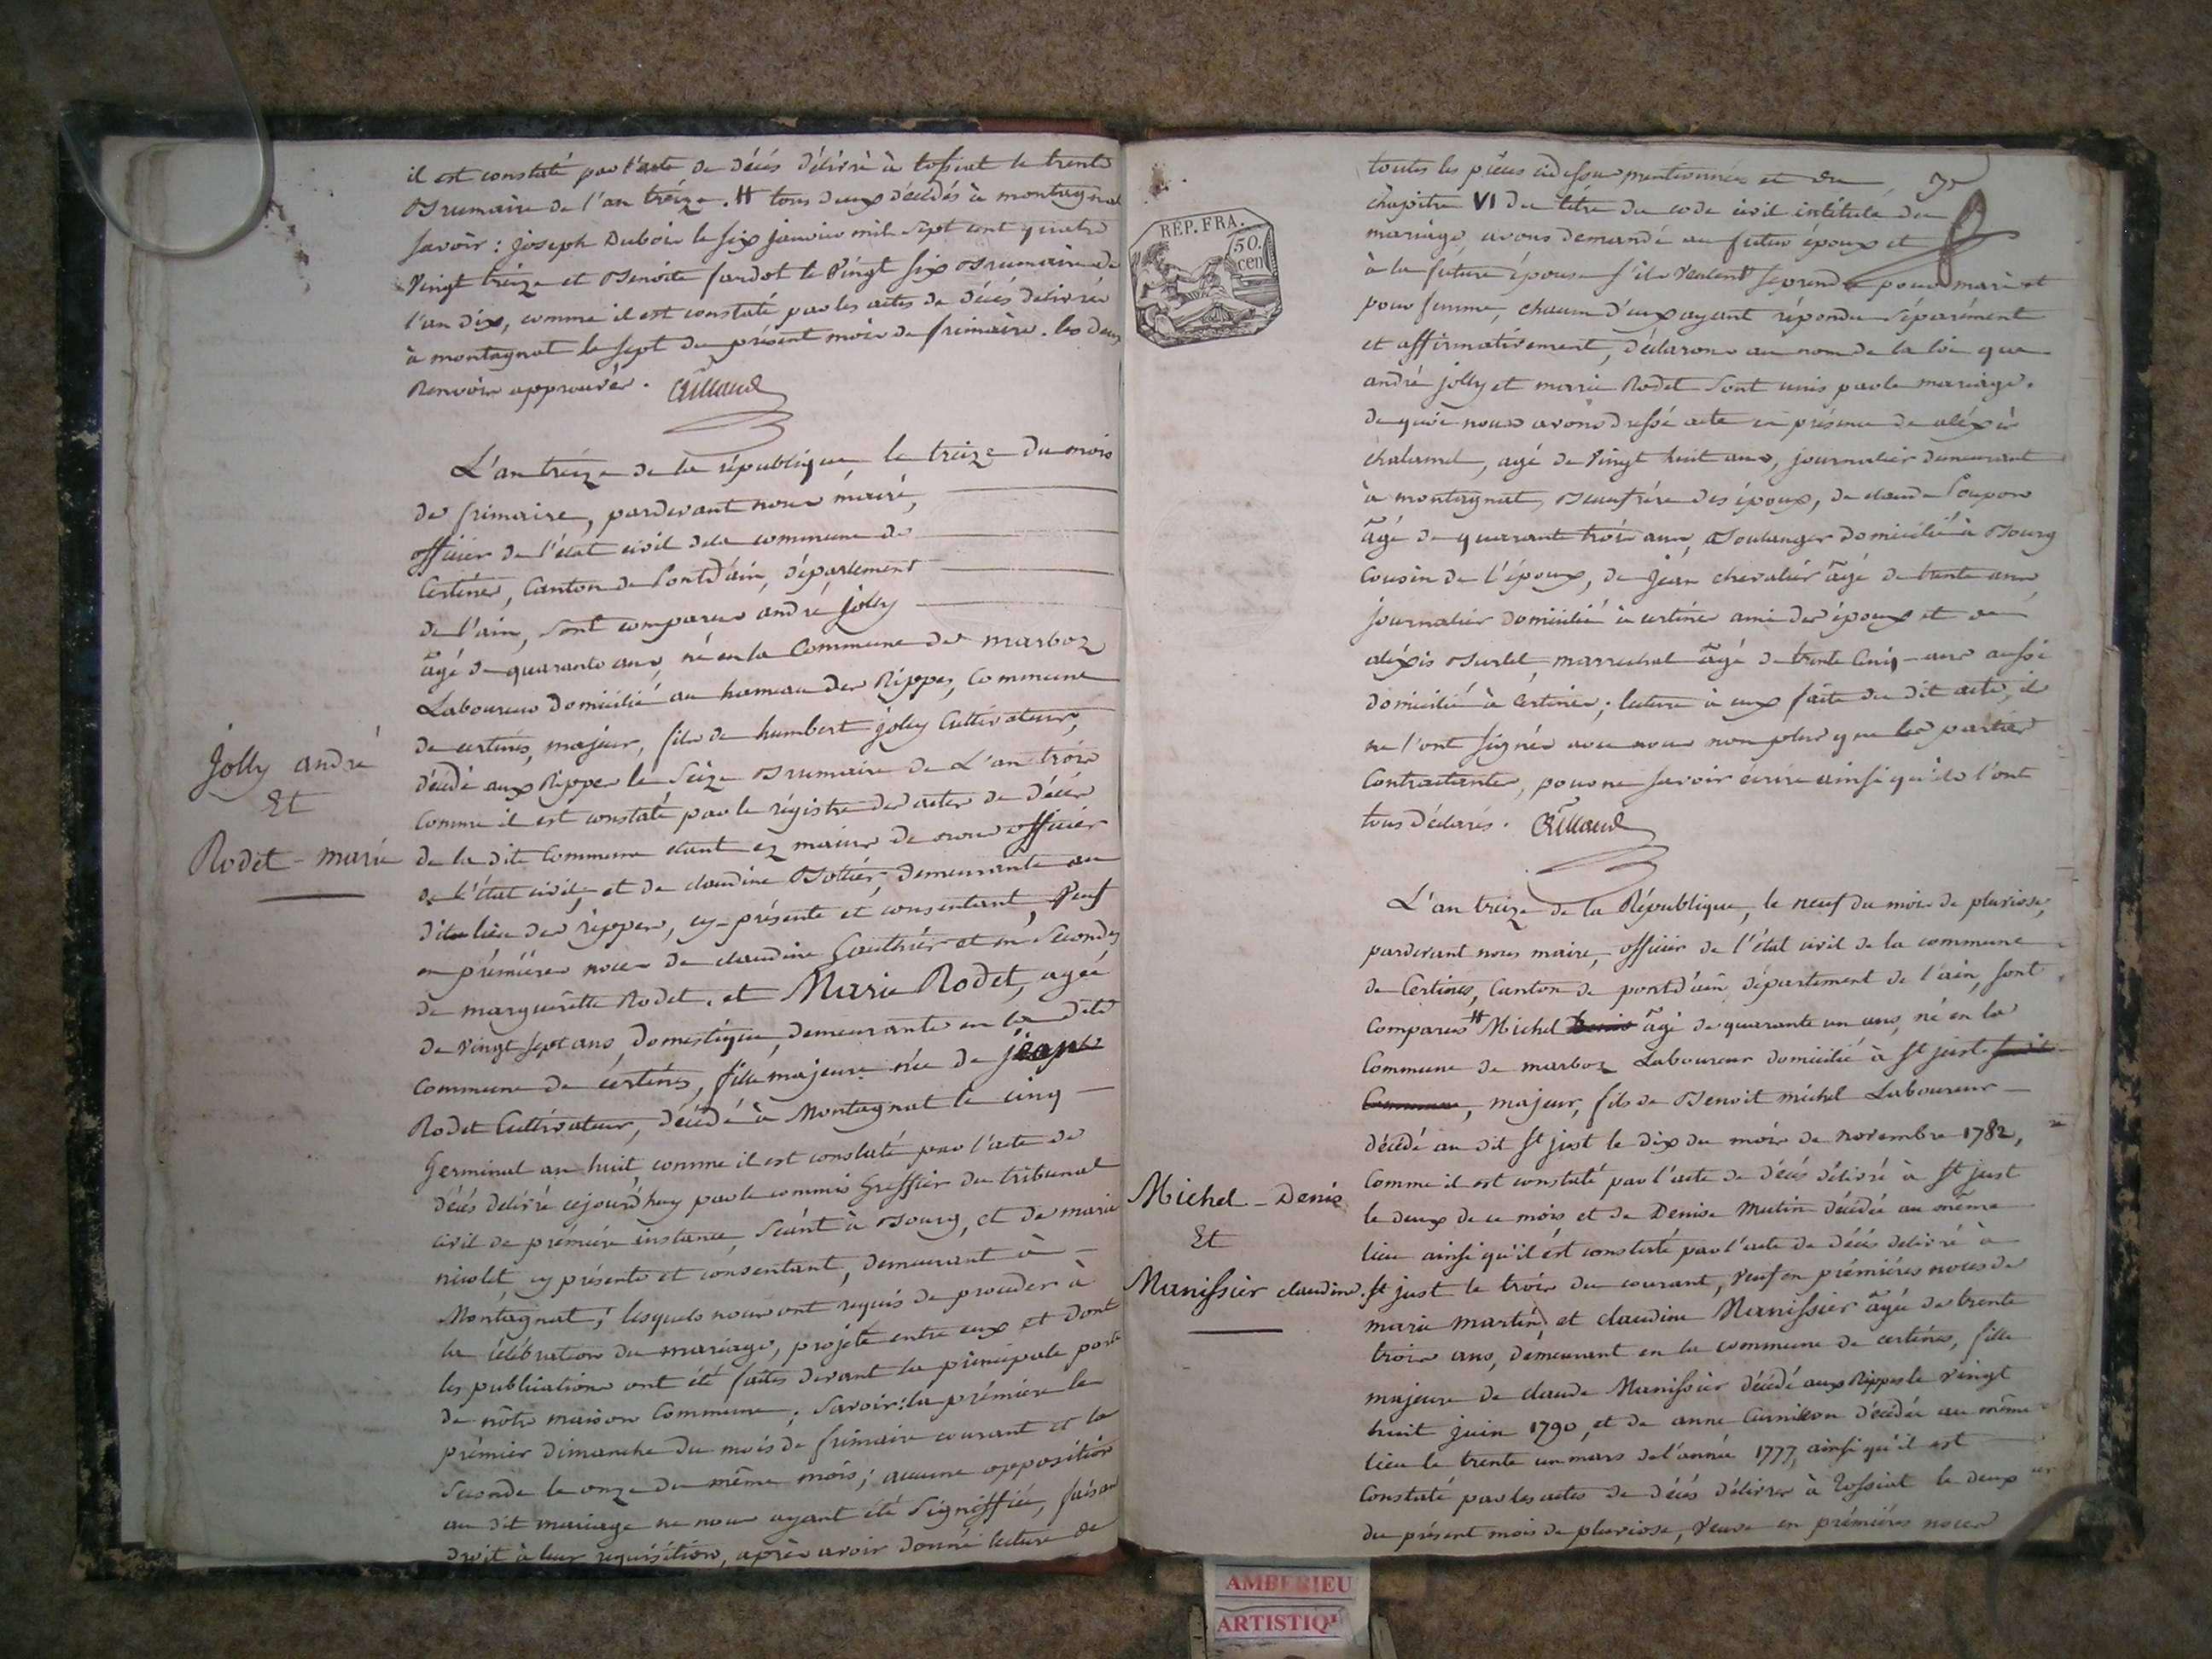 il est constaté par l'acte de décés délivré à tossiat le trente
Brumaire de l'an treize. # tous deux décédés à montagnat
savoir : joseph Dubois le six janvier mil sept cent quatre
vingt treize et Benoite fardot le vingt six Brumaire de
l'an dix, comme il est constaté par les actes de décés délivrés
à montagnat le sept du présent mois de frimaire. les deux
Renvois approuvés.
L'an treize de la république, le treize du mois
de frimaire, pardevant nous maire,
officier de l'état civil dela commune de
Certines, Canton de Pontd'ain, département
de l'ain, sont comparus andré jolly
âgé de quarante ans, né en la Commune de marboz
Laboureur domicilié au hameau des Rippes, Commune
de certines, majeur, fils de humbert jolly Cultivateur,
décédé aux Rippes le seize Brumaire de L'an trois
Comme il est constaté par le régistre des actes de décés
de la dite Commune étant ez mains de nous officier
de l'état civil, et de claudine Bottier, demeurante au
dit lieu des rippes, cy-présente et consentant, veuf
en prémières noces de claudine Gauthier et en secondes
de margueritte Rodet. et Marie Rodet, agée
de vingt sept ans, domestique, demeurante en la dite
Commune de certines, fille majeure née de jean
Rodet Cultivateur, décédé à Montagnat le cinq
Germinal an huit, comme il est constaté par l'acte de
décés délivré cejourd'huy par le commis Greffier du tribunal
civil de prémière instance, séant à Bourg, et de marie
nicolet, cy présente et consentant, demeurant à
Montagnat ; lesquels nous ont requis de proceder à
la célébration du mariage, projeté entre eux et dont
les publications ont été faites devant la principale porte
de nôtre maison Commune ; savoir : la prémiere le
prémier dimanche du mois de frimaire courant et la
seconde le onze du même mois ; aucune opposition
au dit mariage ne nous ayant été signiffiée, faisant
droit à leur requisition, après avoir donné lecture de
Jolly andré
Et
Rodet - marie
toutes les pièces cidessus mentionnées et du
chapitre VI du titre du code civil intitulé du
mariage, avons demandé au futur époux et
à la future épouse s'ils veulent se prendre pour mari et
pour femme, chacun d'eux ayant répondu séparément
et affirmativement, déclarons au nom de la loi que
andré jolly et marie Rodet sont unis par le mariage.
de quoi nous avons dressé acte en présence de aléxis
chaland, agé de vingt huit ans, journalier demeurant
à montagnat, Beaufrère des époux, de claude Poupon
âgé de quarante trois ans, Boulanger domicilié à Bourg
Cousin de l'époux, de jean chevalier âgé de trente ans
journalier domicilié à certines ami des époux et de
aléxis Burlet, marrechal âgé de trente cinq ans aussi
domicilié à Certines ; lecture à eux faite du dit acte, ils
ne l'ont signés avec nous non plus que les parties
Contractantes, pour ne savoir écrire ainsi qu'ils l'ont
tous déclarés.
RÉP. FRA.
50.
cen
L'an treize de la République, le neuf du mois de pluviose,
pardevant nous maire, officier de l'état civil de la commune
de Certines, Canton de pontd'ain, département de l'ain, sont
Comparus # Michel Denis âgé de quarante un ans, né en la
Commune de marboz Laboureur domicilié à St just
Commune, majeur, fils de Benoit michel Laboureur
décédé au dit St just le dix du mois de novembre 1782,
Comme il est constaté par l'acte de décés délivré à St just
le deux de ce mois et de Denise Mutin décédée au même
lieu ainsi qu'il est constaté par l'acte de décés delivré à
St just le trois du courant, veuf en prémières noces de
marie martin, et claudine Manissier âgée de trente
trois ans, demeurant en la commune de certines, fille
majeure de claude Manissier décédé aux Rippes le vingt
huit juin 1790, et de anne Curnillon décédée au même
lieu le trente un mars de l'année 1777, ainsi qu'il est
Constaté par les actes de décés délivrés à Tossiat le deux
du présent mois de pluviose, veuve en prémières noces
Michel - Denis
Et
Manissier claudine.
AMBERIEU
ARTISTIQU